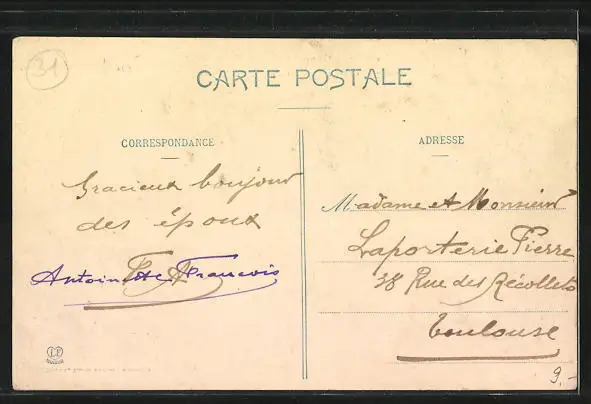 31
CARTE POSTALE
CORRESPONDANCE
Gracieux bonjour
des époux
F A
Antoinette François
ADRESSE
Madame et Monsieur
Laporterie Pierre
38 Rue des Récollets
Toulouse
9.-